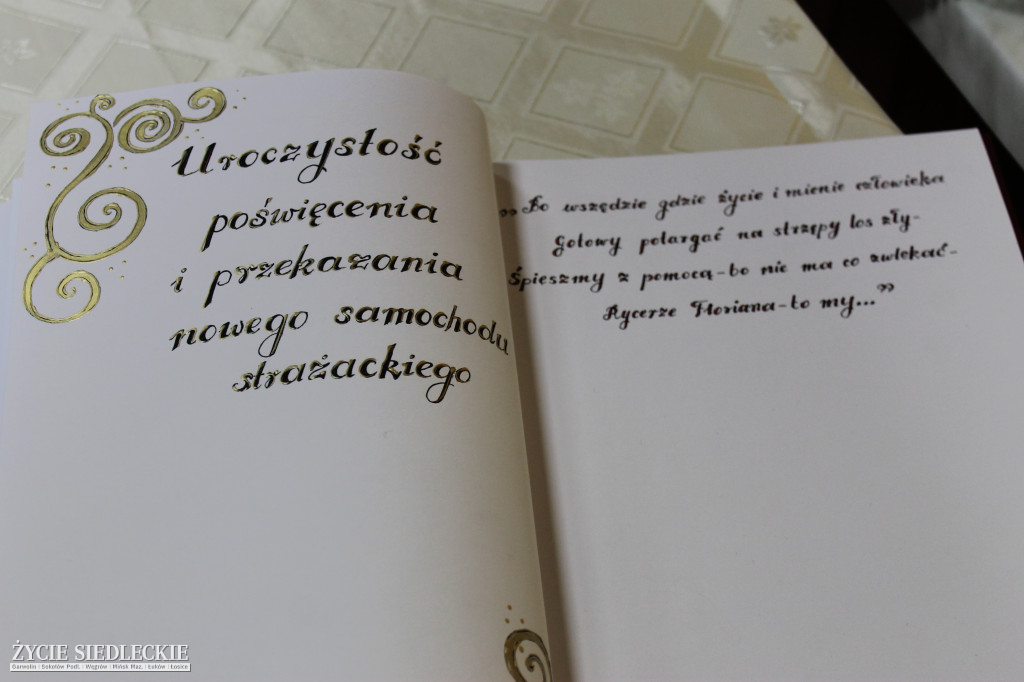 Uroczystość
poświęcenia
i przekazania
nowego samochodu
strażackiego
„Bo wszędzie gdzie życie i mienie człowieka
Gotowy potargać na strzępy los zły-
Śpieszmy z pomocą-bo nie ma co zwlekać-
Rycerze Floriana-to my..."
ŻYCIE SIEDLECKIE
Garwolin | Sokołów Podl. | Węgrów | Mińsk Maz. | Łuków | Łosice